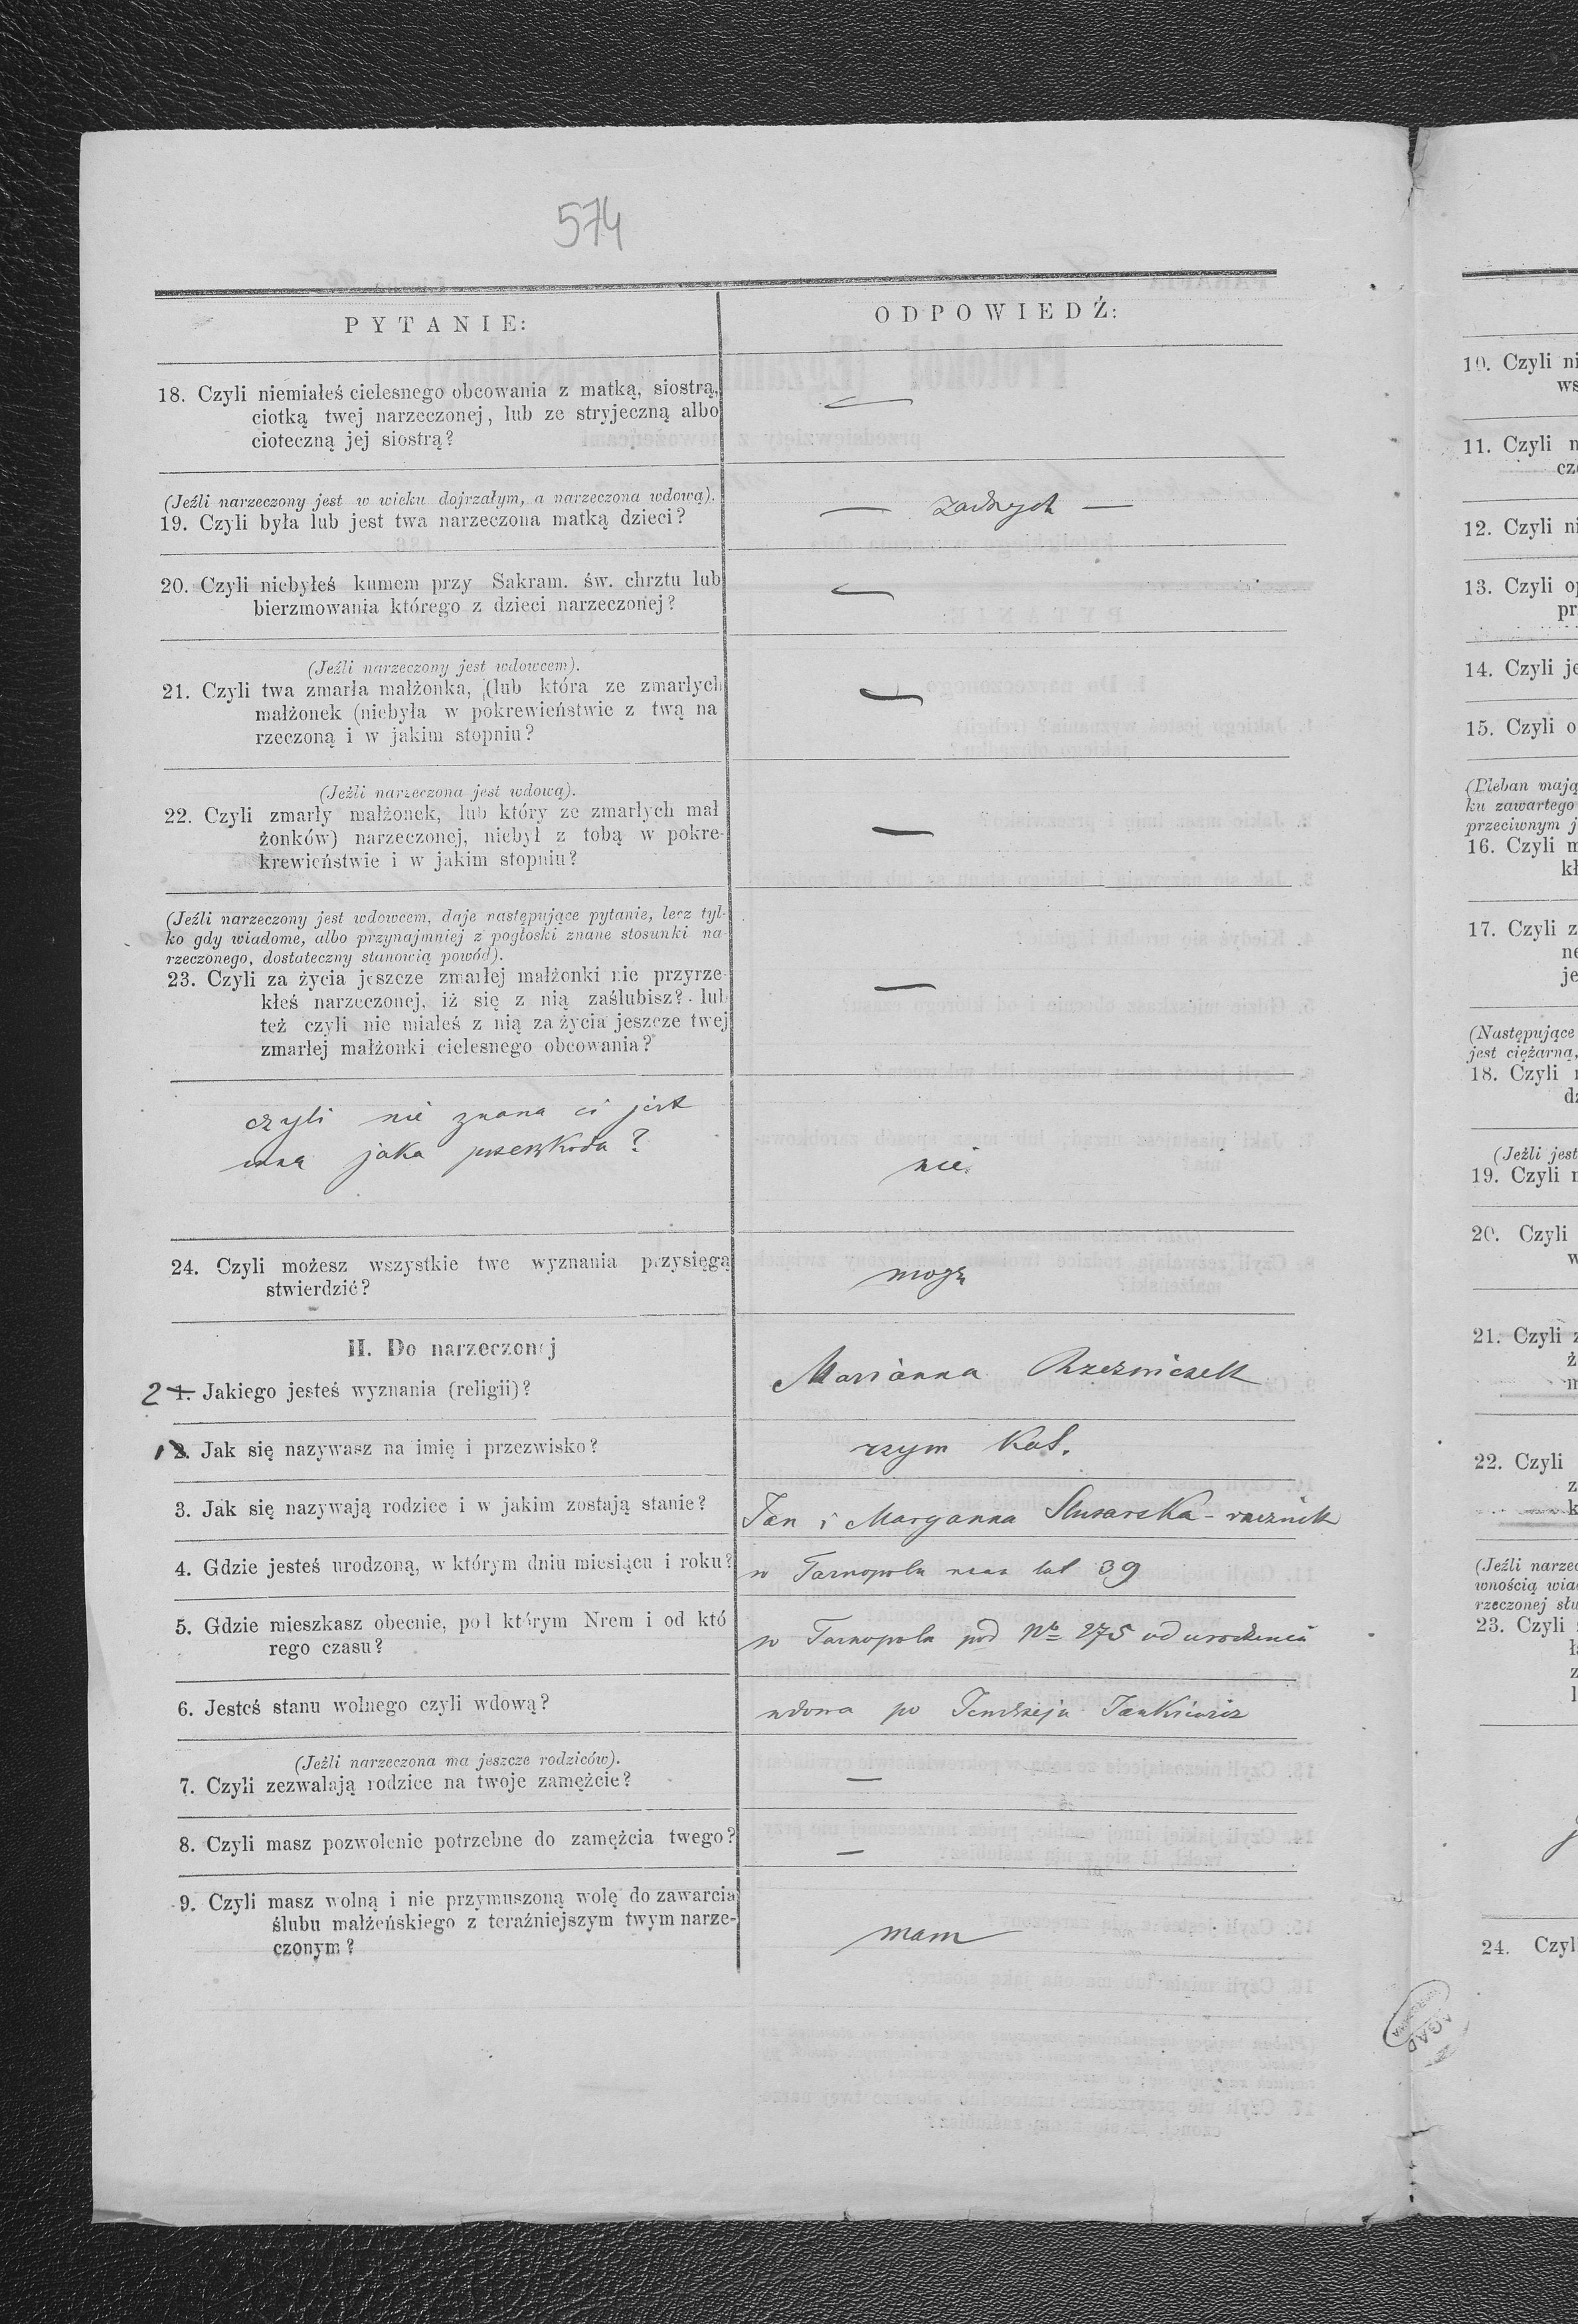 574
PYTANIE:
ODPOWIEDŹ:
18. Czyli niemiałeś cielesnego obcowania z matką, siostrą,
ciotką twej narzeczonej, lub ze stryjeczną albo
cioteczną jej siostrą?
—
(Jeźli narzeczony jest w wieku dojrzałym, a narzeczona wdową).
19. Czyli była lub jest twa narzeczona matką dzieci?
— żadnych —
20. Czyli niebyłeś kumem przy Sakram. św. chrztu lub
bierzmowania którego z dzieci narzeczonej?
—
(Jeźli narzeczony jest wdowcem).
21. Czyli twa zmarła małżonka, (lub która ze zmarłych
małżonek (niebyła w pokrewieństwie z twą na
rzeczoną i w jakim stopniu?
—
(Jeźli narzeczona jest wdową).
22. Czyli zmarły małżonek, lub który ze zmarłych mał
żonków) narzeczonej, niebył z tobą w pokre-
krewieństwie i w jakim stopniu?
—
(Jeźli narzeczony jest wdowcem, daje następujące pytanie, lecz tyl-
ko gdy wiadome, albo przynajmniej z pogłoski znane stosunki na-
rzeczonego, dostateczny stanowią powód).
23. Czyli za życia jeszcze zmarłej małżonki nie przyrze-
kłeś narzeczonej, iż się z nią zaślubisz? lub
też czyli nie miałeś z nią za życia jeszcze twej
zmarłej małżonki cielesnego obcowania?
—
czyli nie znana ci jest
inna jaka przeszkoda?
nie.
24. Czyli możesz wszystkie twe wyznania przysięgą
stwierdzić?
mogę
II. Do narzeczonej
2 1. Jakiego jesteś wyznania (religii)?
Marianna Rzeszniczek
1 2. Jak się nazywasz na imię i przezwisko?
rzym Kat.
3. Jak się nazywają rodzice i w jakim zostają stanie?
Jan i Maryanna Slusarska - rzeznik
4. Gdzie jesteś urodzoną, w którym dniu miesiącu i roku?
w Tarnopolu mam lat 39
5. Gdzie mieszkasz obecnie, pod którym Nrem i od któ
rego czasu?
w Tarnopolu pod Nr 275 od urodzenia
6. Jesteś stanu wolnego czyli wdową?
wdowa po Jendrzeju Jankiewicz
(Jeźli narzeczona ma jeszcze rodziców).
7. Czyli zezwalają rodzice na twoje zamęźcie?
—
8. Czyli masz pozwolenie potrzebne do zamęźcia twego?
—
9. Czyli masz wolną i nie przymuszoną wolę do zawarcia
ślubu małżeńskiego z teraźniejszym twym narze-
czonym?
mam
10. Czyli ni
ws
11. Czyli n
cz
12. Czyli ni
13. Czyli o
pr
14. Czyli je
15. Czyli o
(Pleban mają
ku zawartego
przeciwnym j
16. Czyli m
kł
17. Czyli z
ne
je
(Następujące
jest ciężarną,
18. Czyli
dz
(Jeźli jest
19. Czyli
20. Czyli
w
21. Czyli z
ż
n
22. Czyli
z
k
(Jeźli narzec
wnością wia
rzeczonej słu
23. Czyli
ł
z
l
24. Czyl
AGAD